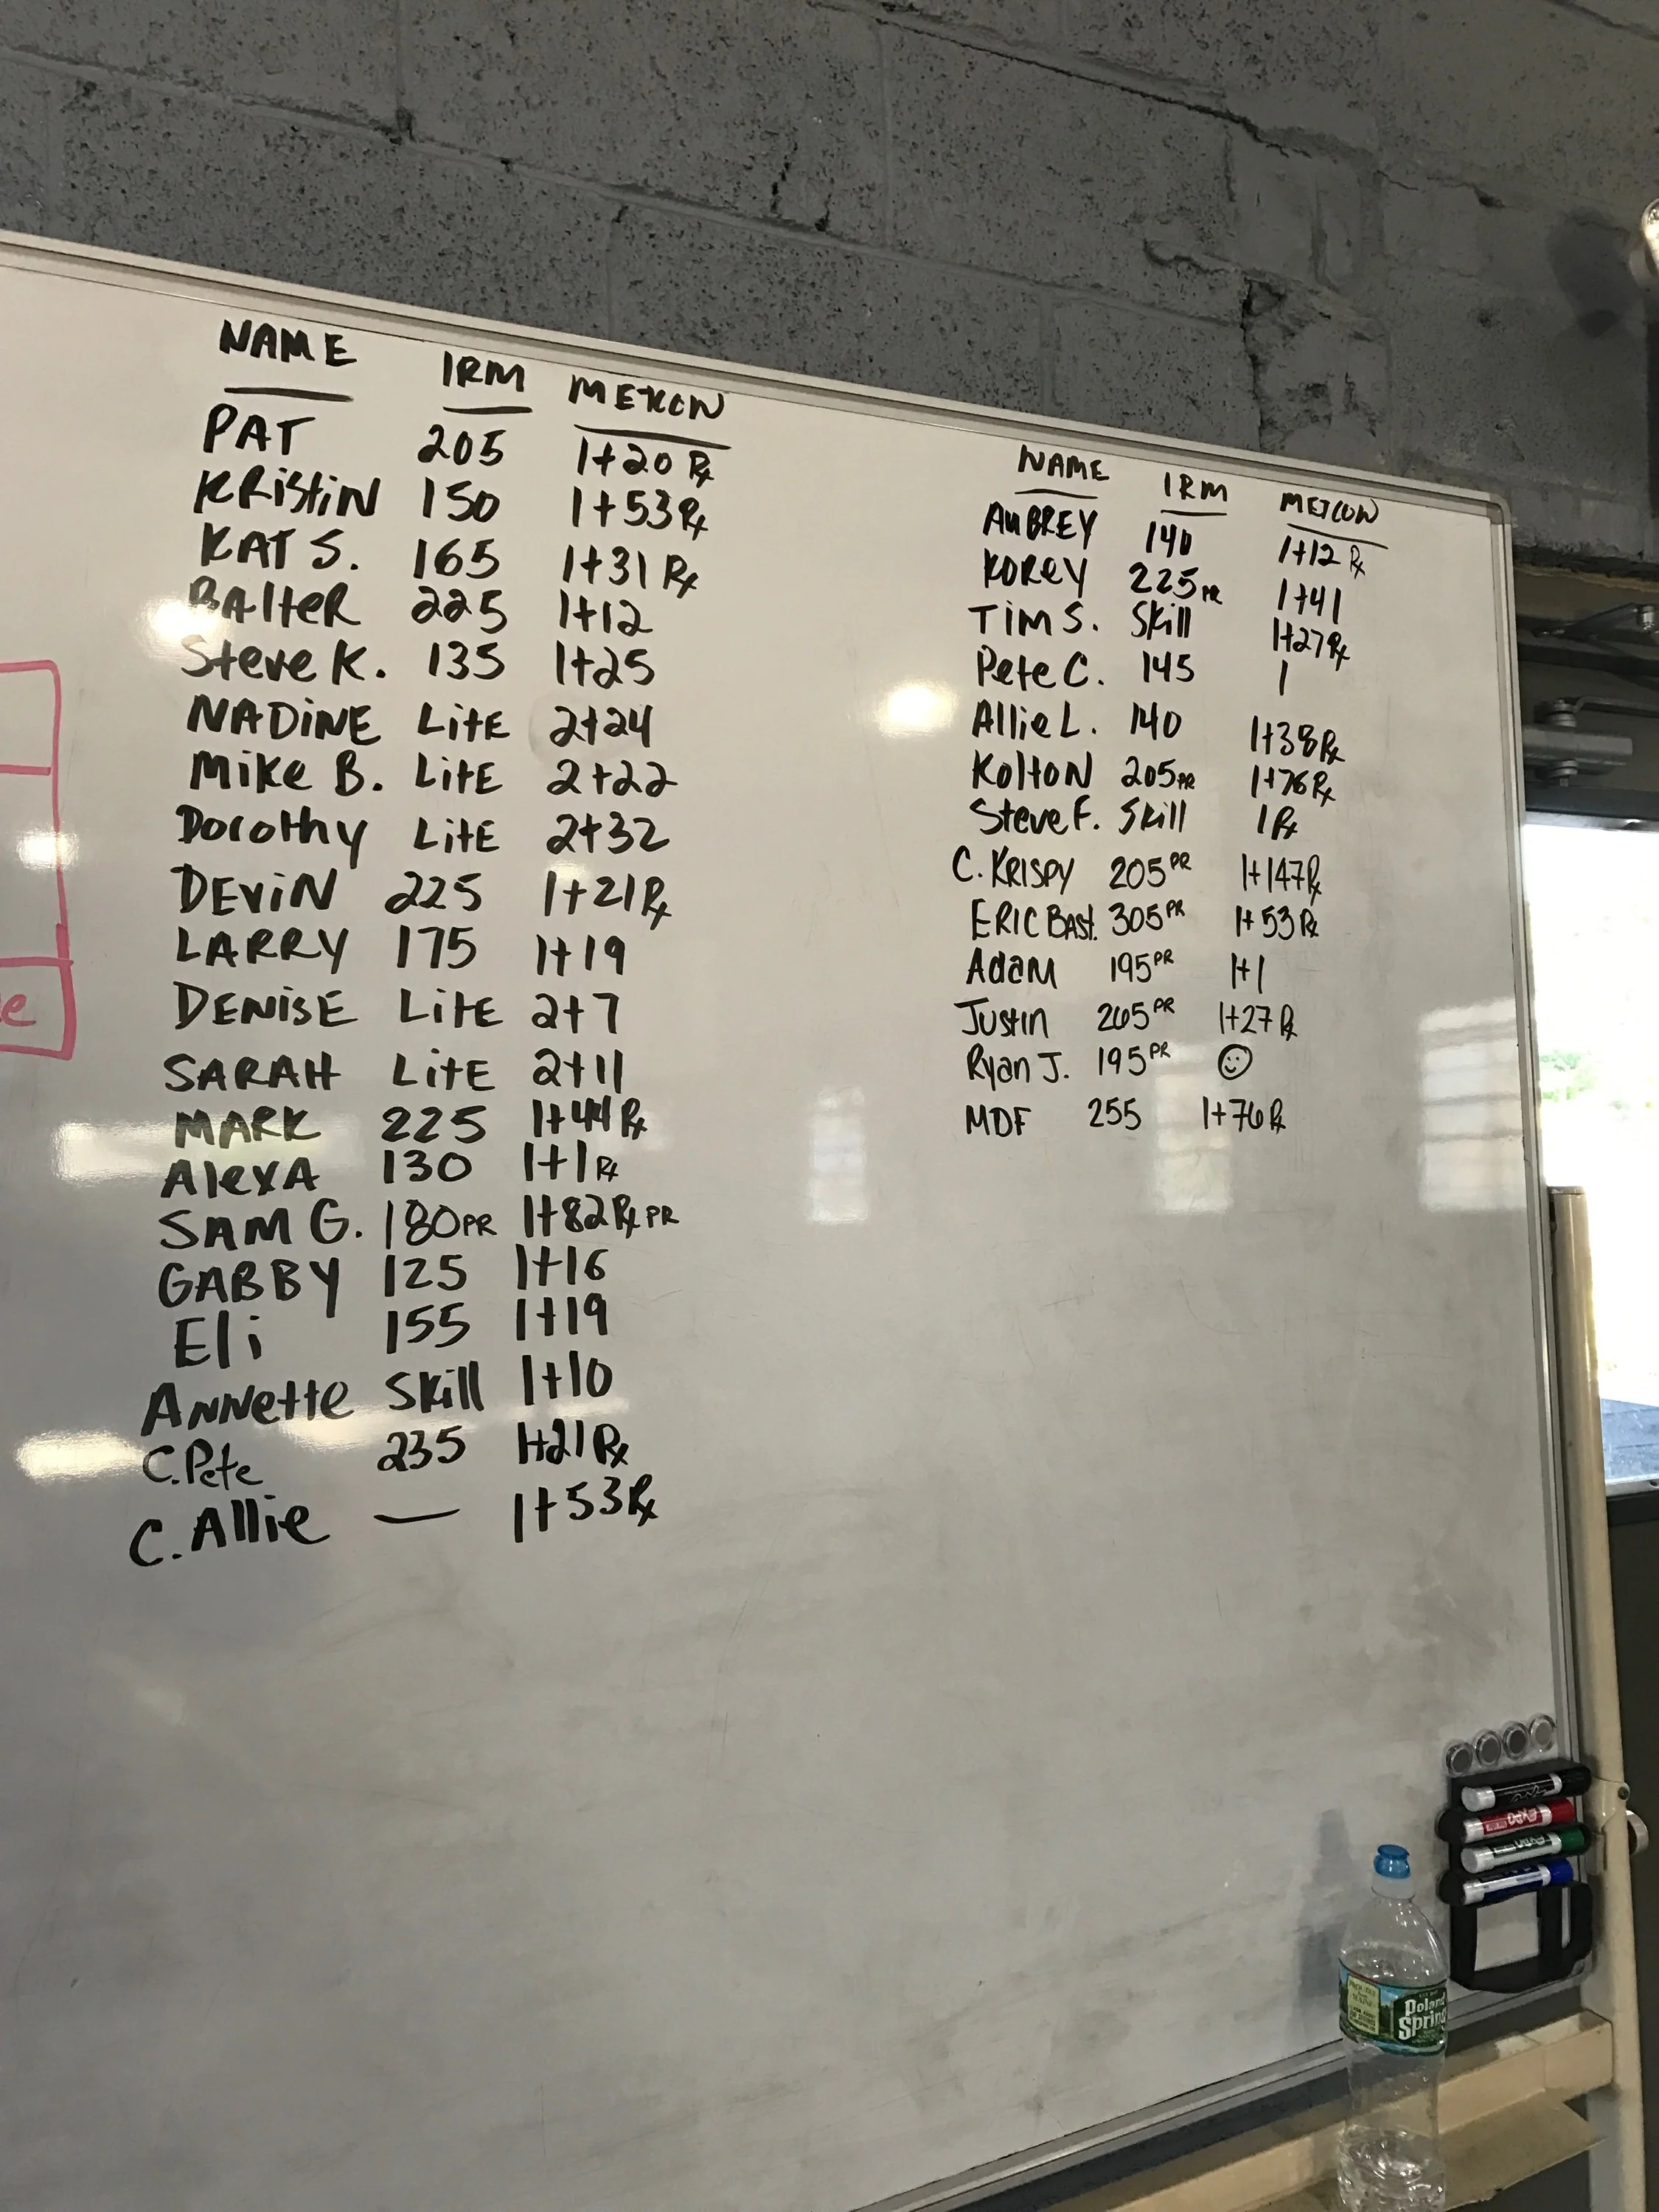 NAME 1RM METCON
PAT 205 1+20 Rx
KRISTIN 150 1+53 Rx
KAT S. 165 1+31 Rx
BAlteR 225 1+12
Steve K. 135 1+25
NADINE LitE 2+24
Mike B. LitE 2+22
Dorothy LitE 2+32
DEViN 225 1+21 Rx
LARRY 175 1+19
DENiSE LitE 2+7
SARAH LitE 2+11
MARK 225 1+44 Rx
AlexA 130 1+1 Rx
SAM G. 180 PR 1+82 Rx PR
GABBY 125 1+16
Eli 155 1+19
ANNette Skill 1+10
C.Pete 235 1+21 Rx
C. Allie — 1+53 Rx
NAME 1RM METCON
AUBREY 140 1+12 Rx
KOREY 225 PR 1+41
Tim S. Skill 1+27 Rx
Pete C. 145 1
Allie L. 140 1+38 Rx
KoltoN 205 PR 1+76 Rx
Steve F. Skill 1 Rx
C. KRISPY 205 PR 1+147 Rx
ERIC BAST. 305 PR 1+53 Rx
Adam 195 PR 1+1
Justin 265 PR 1+27 Rx
Ryan J. 195 PR ☺
MDF 255 1+76 Rx
e
EXPO
Poland
Spring